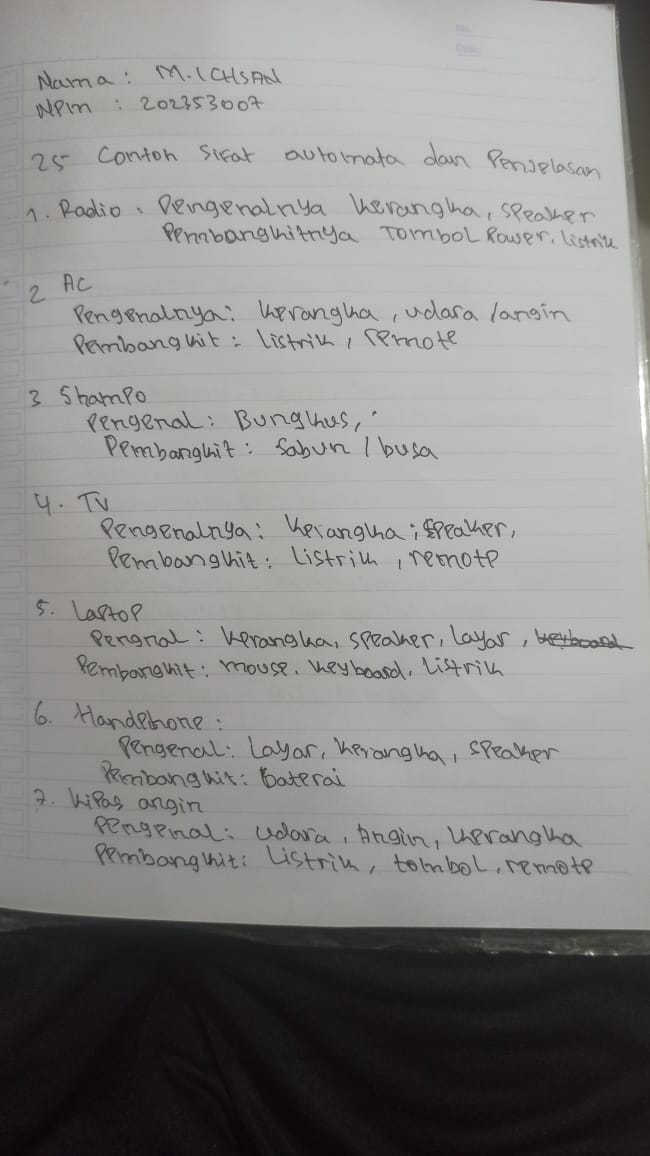 Nama : M.ICHSAN
NPM : 202353007
25 Contoh Sifat automata dan Penjelasan
1. Radio . Pengenalnya kerangka, speaker
Pembangkitnya Tombol Power, listrik
2 AC
Pengenalnya : kerangka, udara /angin
Pembangkit : listrik, remote
3 Shampo
Pengenal : Bungkus,
Pembangkit : Sabun / busa
4. TV
Pengenalnya : kerangka ; speaker,
Pembangkit : Listrik, remote
5. Laptop
Pengnal : kerangka, speaker, layar, keyboard
Pembangkit : mouse, keyboard, listrik
6. Handphone :
Pengenal : Layar, kerangka, speaker
Pembangkit : Baterai
7. kipas angin
Pengenal : udara, Angin, kerangka
Pembangkit : Listrik, tombol, remote